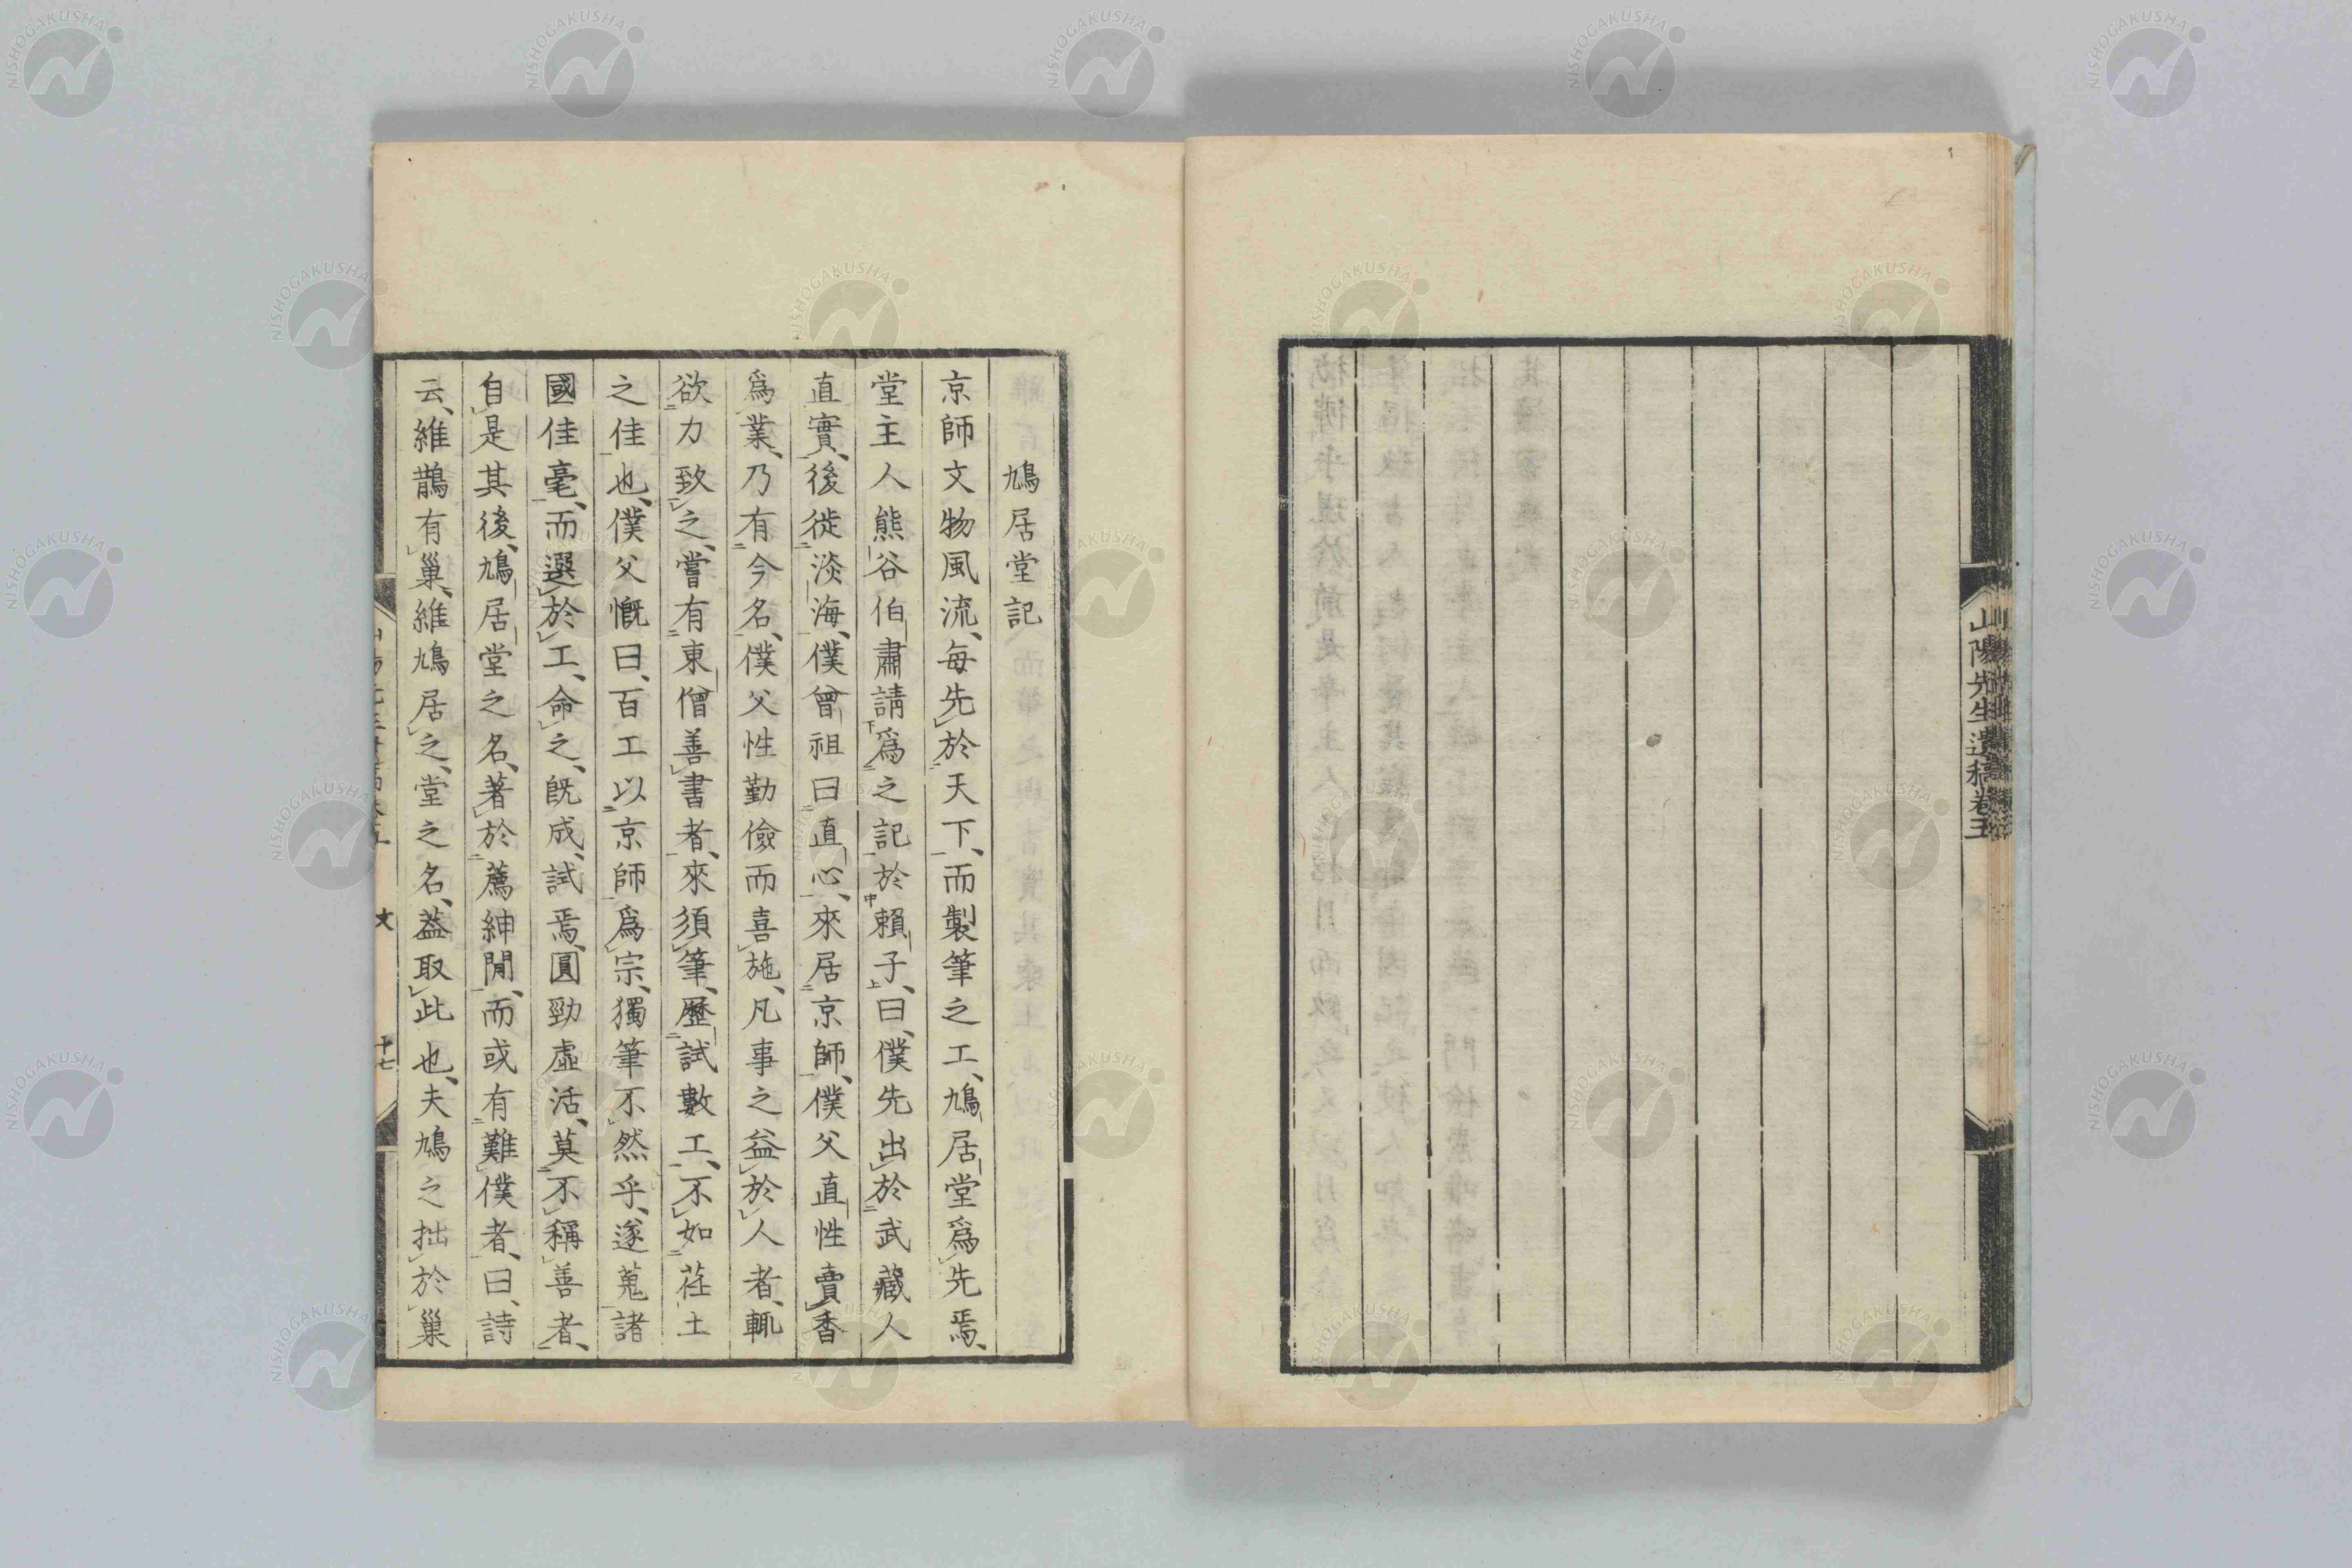 山陽先生遺稿卷五
鳩居堂記
京師文物風流、每先於天下、而製筆之工、鳩居堂爲先焉、
堂主人熊谷伯肅請爲之記於賴子、曰、僕先出於武藏人
直實、後徙淡海、僕曾祖曰直心、來居京師、僕父直性賣香
爲業、乃有今名、僕父性勤儉而喜施、凡事之益於人者、輒
欲力致之、嘗有東僧善書者、來須筆、歷試數工、不如荏土
之佳也、僕父慨曰、百工以京師爲宗、獨筆不然乎、遂蒐諸
國佳毫、而選於工、命之、旣成、試焉、圓勁虛活、莫不稱善者、
自是其後、鳩居堂之名、著於薦紳閒、而或有難僕者、曰、詩
云、維鵲有巢、維鳩居之、堂之名、葢取此也、夫鳩之拙於巢
文
十七
NISHOGAKUSHA